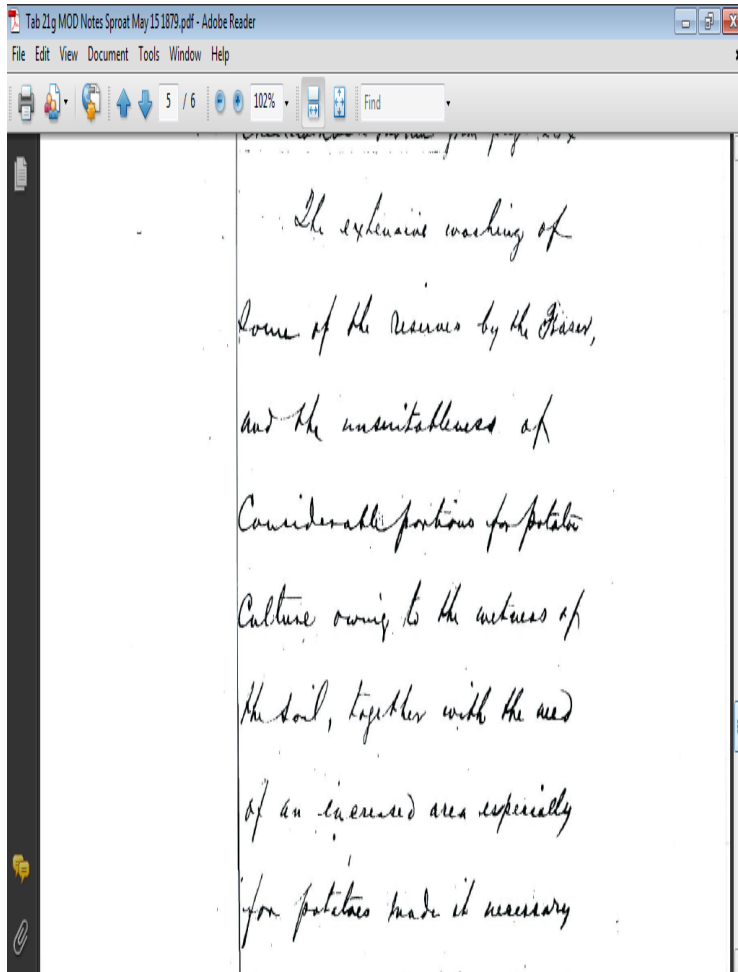 Tab 21g MOD Notes Sproat May 15 1879.pdf - Adobe Reader
File Edit View Document Tools Window Help
5 / 6 102% Find
The extensive washing of
Some of the reserves by the Fraser,
and the unsuitableness of
Considerable portions for potatoe
Culture owing to the wetness of
the soil, together with the need
of an increased area especially
for potatoes made it necessary